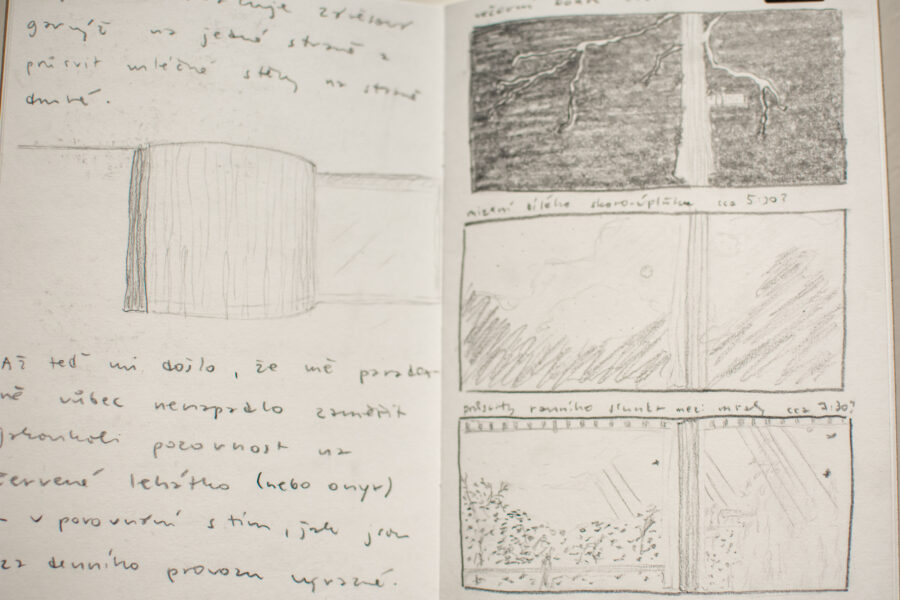 garnýž na jedné straně a
průsvit mléčné stěny na straně
druhé.
Až teď mi došlo, že mě paradox-
ně vůbec nenapadlo zaměřit
jakoukoli pozornost na
červené lehátko (nebo onyx)
- v porovnání s tím, jak jsou
za denního provozu výrazné.
mizení bílého skoro-úplňku cca 5:30?
průsvity ranního slunka mezi mraky cca 7:30?